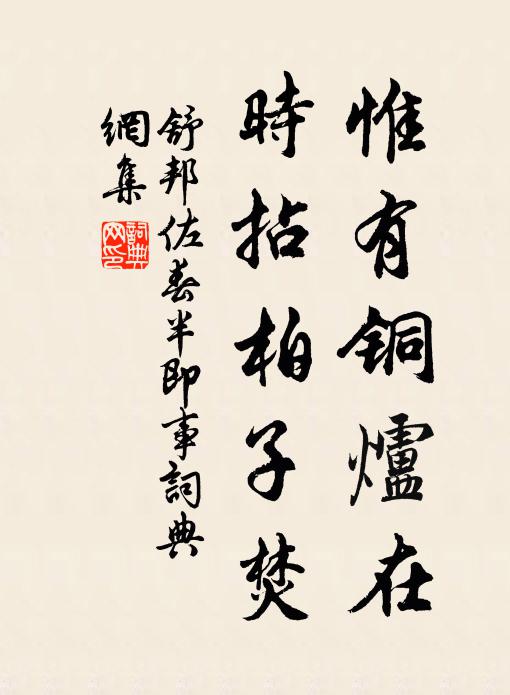 惟有铜爐在
時拈柏子焚
舒邦佐春半即事詞典
網集
詞典網印